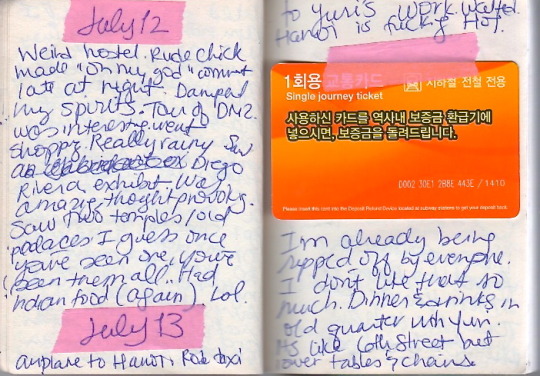 July 12
Weird hostel. Rude chick
made "oh my god" comment
late at night. Damped
my spirits. Tour of DMZ
was interesting went
shoppy. Really rainy Saw
an Diego
Rivera exhibit. Was
amazing thought provoking.
Saw two temples/old
palaces I guess once
you've seen one, you've
been them all. Had
Indian food (again). Lol.
July 13
airplane to Hanoi. Rode taxi
to Yuri's work. Waited.
Hanoi is fucking Hot.
1회용 교통카드 지하철 전철 전용
Single journey ticket
사용하신 카드를 역사내 보증금 환급기에
넣으시면, 보증금을 돌려드립니다.
0002 30E1 2B8E 443E / 1410
Please insert this card into the Deposit Refund Device located at subway stations to get your deposit back.
I'm already being
ripped off by everyone.
I don't like that so
much. Dinner & drinks in
old quarter with Yuri.
It's like 6th Street but
lower tables & chairs.